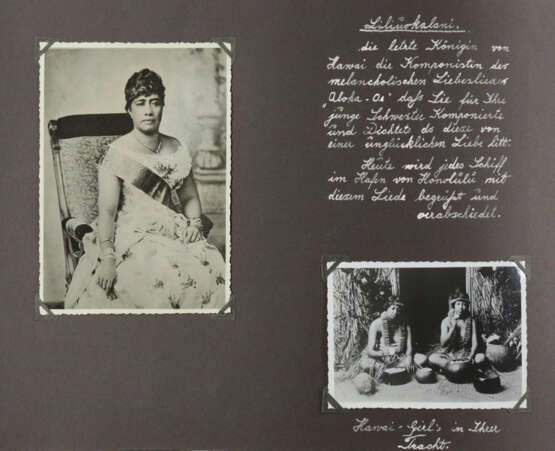 Liliuokalani.
die letzte Königin von
Hawai die Komponisten der
melancholischen Liebeslieder
"Aloha-Oe" daß Sie für Ihre
junge Schwester Komponierte
und Dichtete als diese von
einer unglücklichen Liebe litt.
Heute wird jedes Schiff
im Hafen von Honolulu mit
diesem Liede begrüßt und
verabschiedet.
Hawai-Girl's in Ihrer
Tracht.